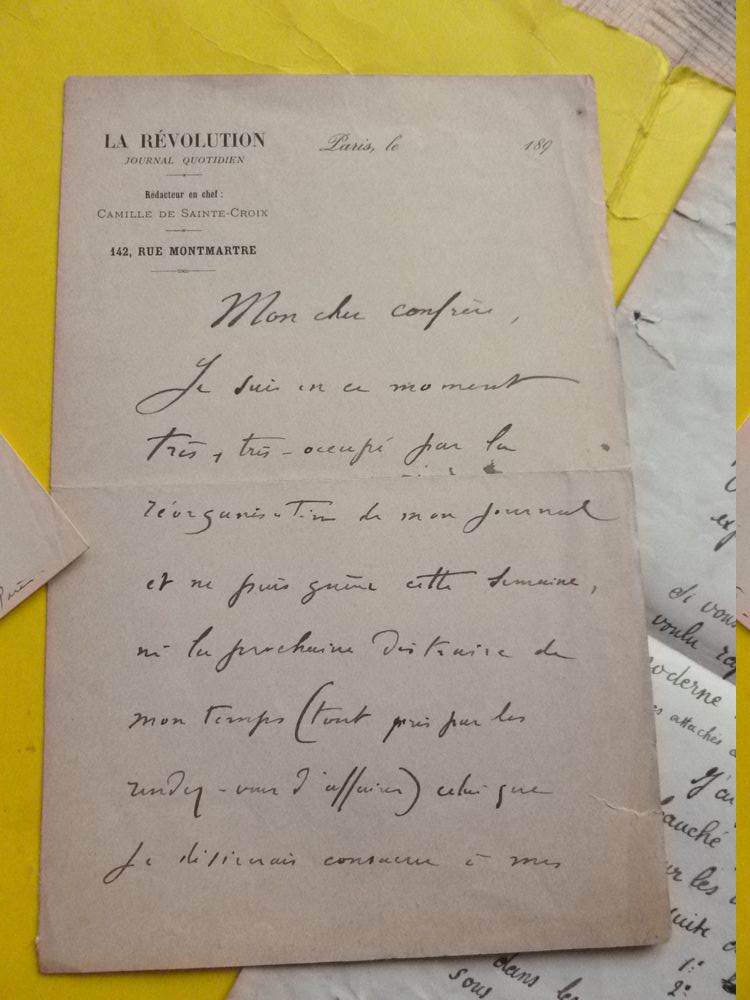 LA RÉVOLUTION
JOURNAL QUOTIDIEN
Rédacteur en chef :
CAMILLE DE SAINTE-CROIX
142, RUE MONTMARTRE
Paris, le 189
Mon cher confrère,
Je suis en ce moment
très, très-occupé par la
réorganisation de mon journal
et ne puis guère cette semaine,
ni la prochaine distraire de
mon temps (tout pris par les
rendez-vous d'affaires) celui que
je désirerais consacrer à mes
Si vous
voulu
moderne
attachés
J'ai
les
suite
1º
2º
dans les
sous